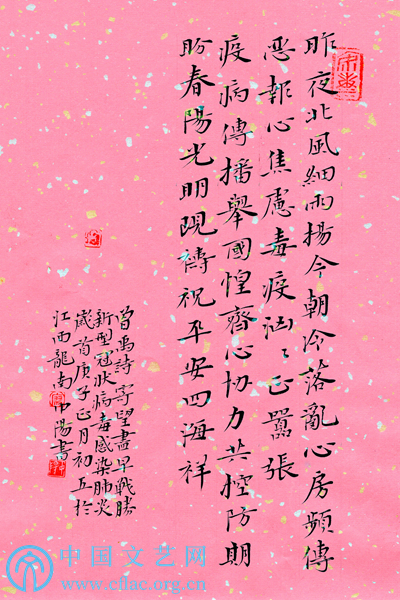 昨夜北風細雨揚今朝冷落亂心房頻傳
恶報心焦慮毒疫洶〻正囂張
疫病傳播舉國惶齊心協力共控防期
盼春陽光明現禱祝平安四海祥
曾禹詩寄望盡早戰勝
新型冠狀病毒感染肺炎
歲首庚子正月初五於
江西龍南中陽書
中国文艺网
www.cflac.org.cn